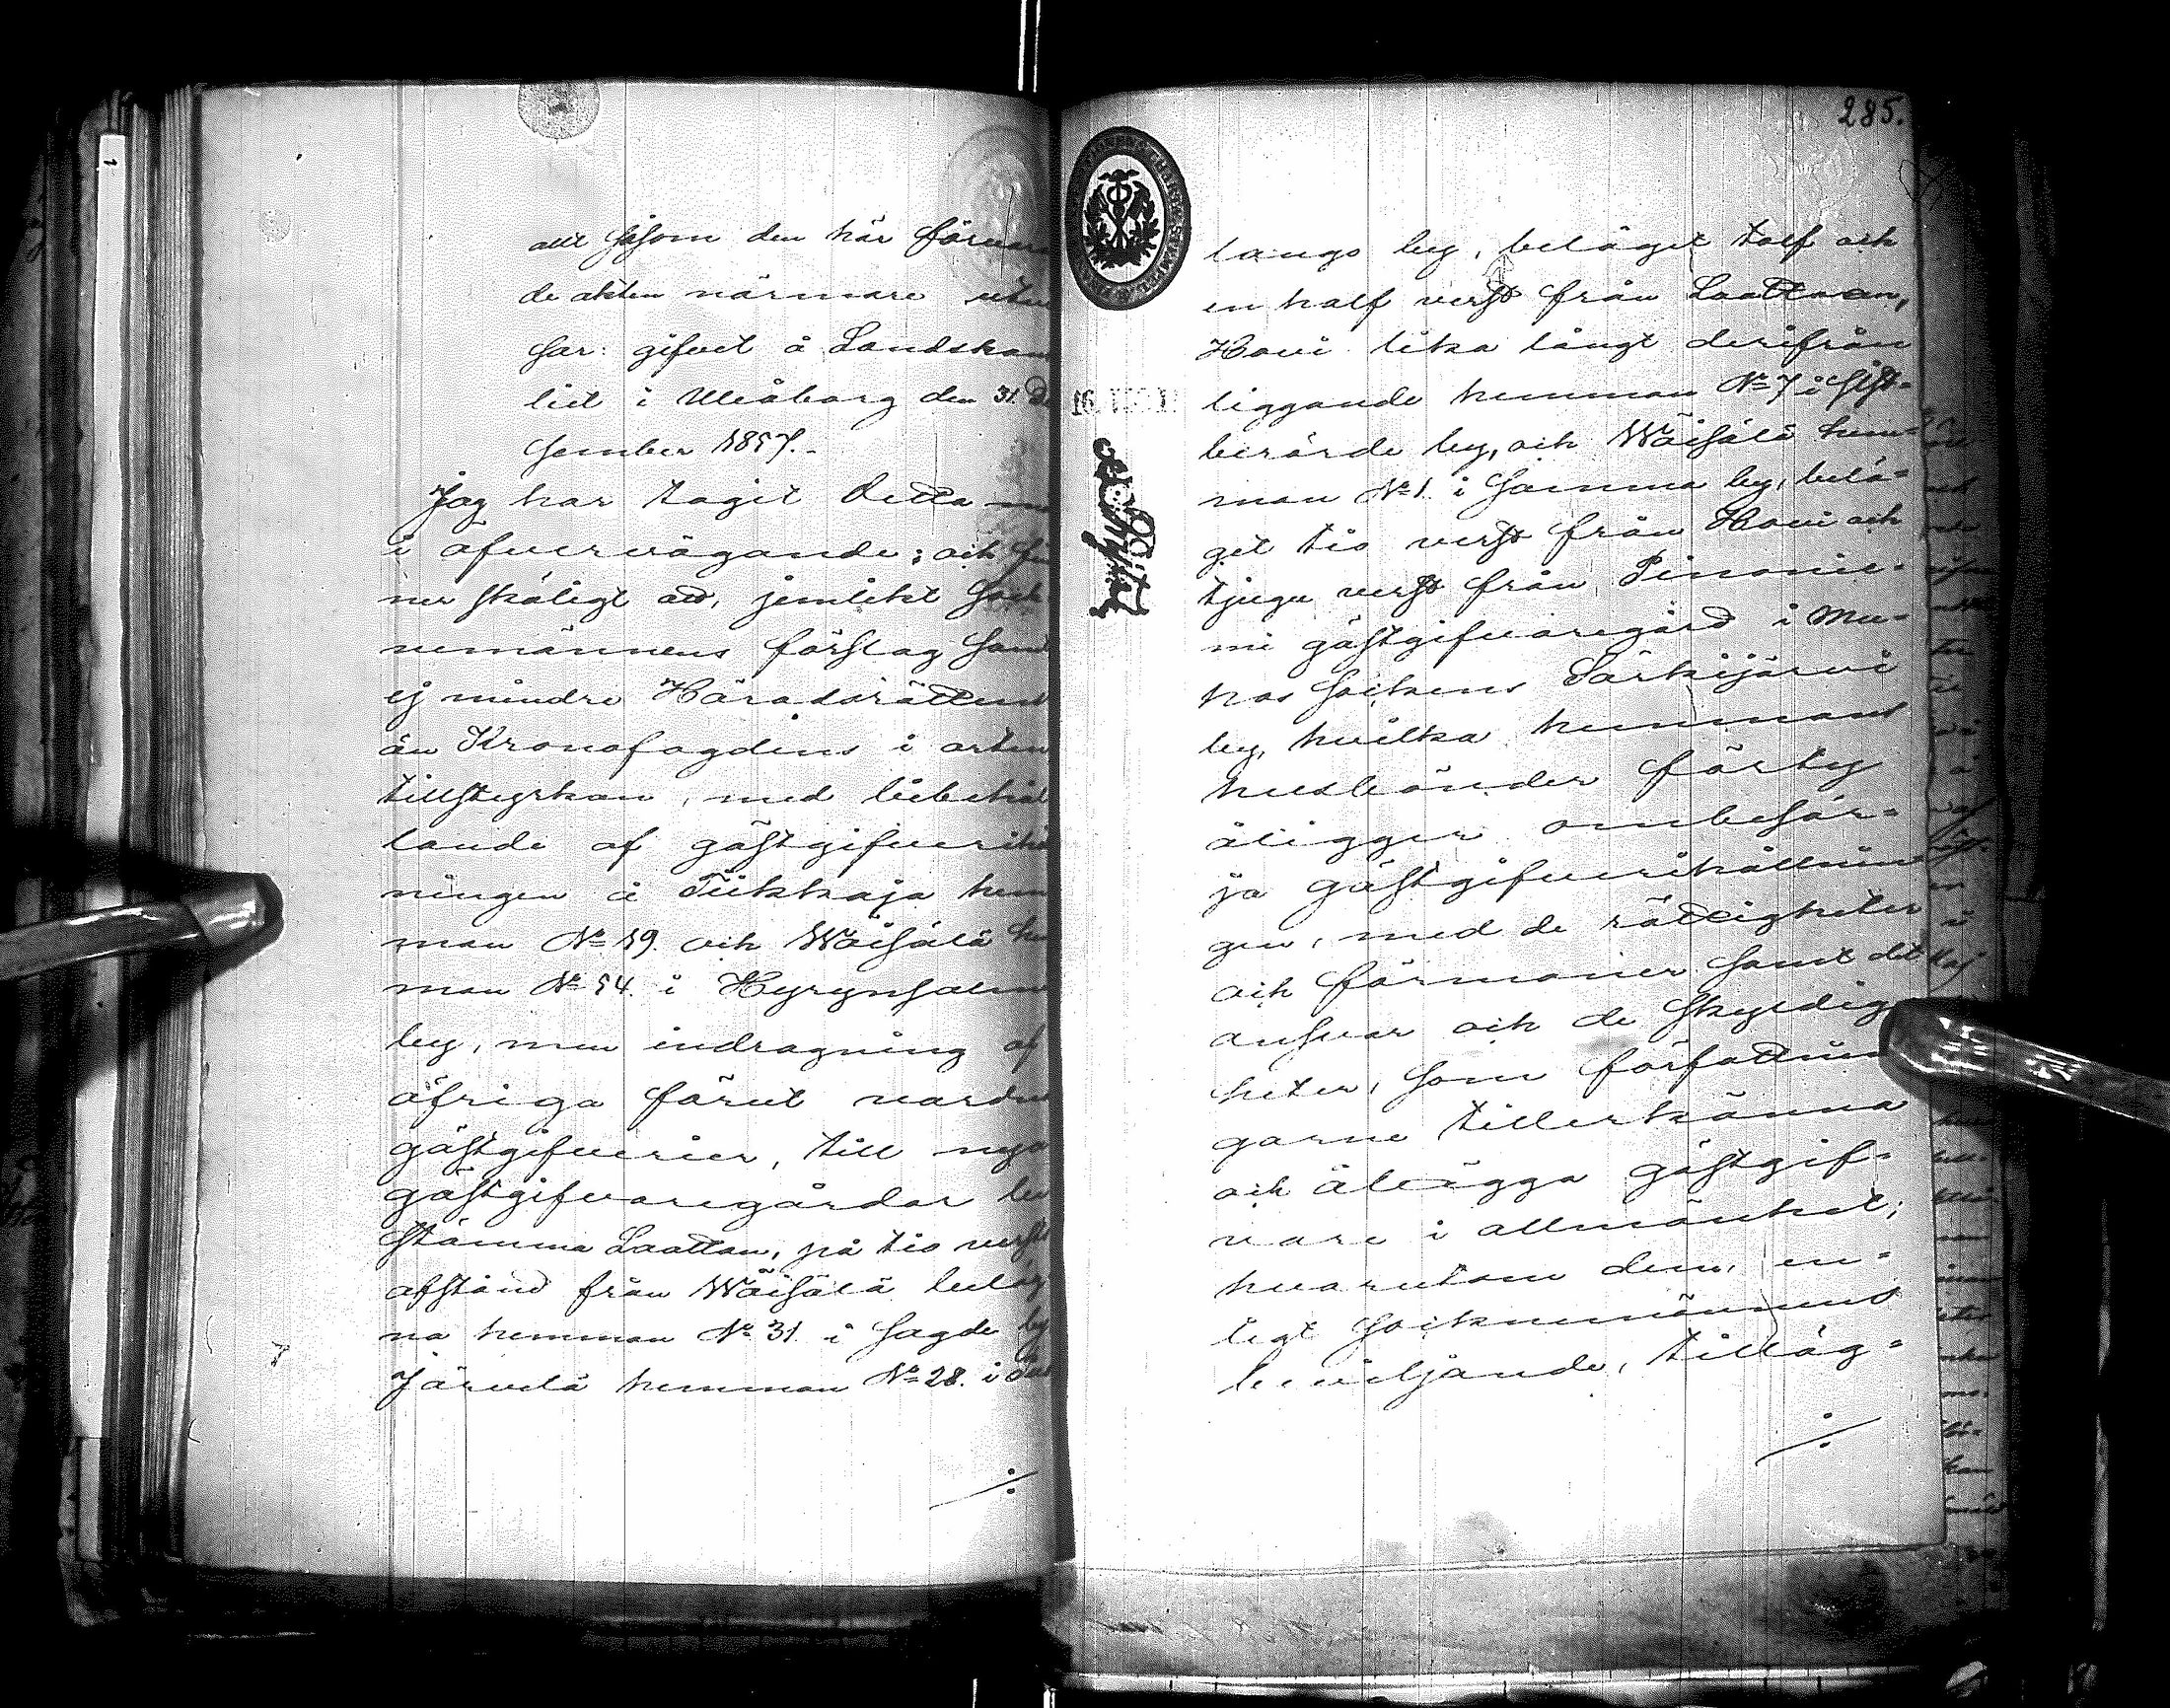 allt såsom den här förvara
de akten närmare utvi
sar: gifvet å Landskans
liet i Uleåborg den 31. De
sember 1857.
Jag har tagit detta
i öfvervägande; och fin
ner skäligt att, jemlikt Sock
nemännens förslag samt
ej mindre Häradsrättens
än Kronofogdens i orten
tillstyrkan, med bibehål
lande af gästgifverihåll
ningen å Tiikkaja hem
man No 19. och Wäisälä hem
man No 54. i Hyrynsalmi
by, men indragning af
öfriga förut varande
gästgifverier, till nya
gästgifvaregårdar be
stämma Laattan, på tio verst
afstånd från Wäisälä beläg
na hemman No 31. i sagde by
Järvelä hemman No 28. i
285.
langs by, beläget tolf och
en half verst från Laattaan,
Hovi lika långt derifrån
liggande hemman No 7 i sist-
berörde by, och Wäisälä hem-
man No 1. i samma by, belä-
get tio verst från Hovi och
tjugu verst från Pinonie-
mi gästgifvaregård i Mu-
hos Sockens Särkijärvi
by, hvilka hemmans
husbönder förty
åligger ombesör-
ja gästgifverihållnin
gen, med de rättigheter
och förmåner samt det
ansvar och de skyldig
heter, som författnin
garne tillerkänna
och ålägga gästgif-
vare i allmänhet;
hvarutom dem, en-
ligt Sockenemännens
beviljande, tilläg-